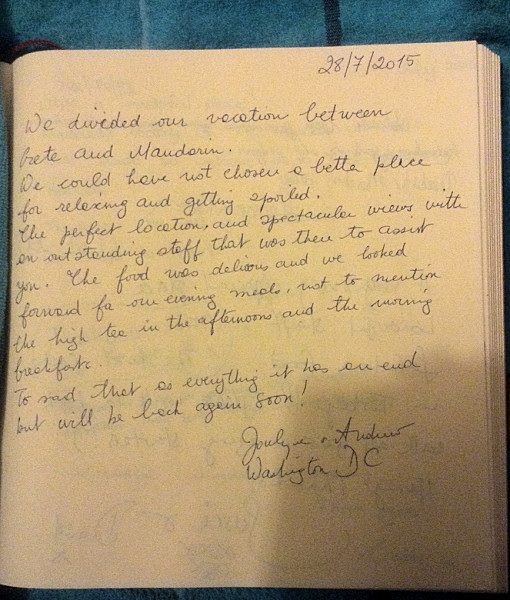 28/7/2015
We divided our vacation between
Crete and Mandarin.
We could have not chosen a better place
for relaxing and getting spoiled.
The perfect location, and spectacular views with
an outstanding staff that was there to assist
you. The food was delicious and we looked
forward for our evening meals, not to mention
the high tea in the afternoons and the morning
breakfasts.
To sad that as everything it has an end
but will be back again soon!
Andrew
Washington DC